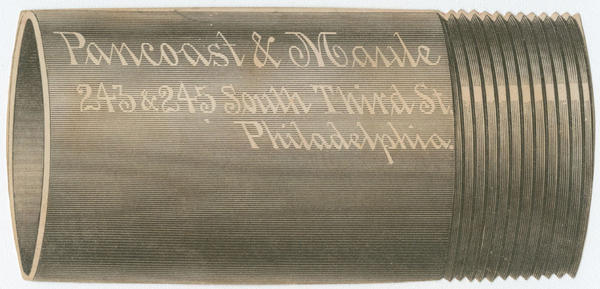 Pancoast & Maule
243 & 245 South Third St.
Philadelphia.